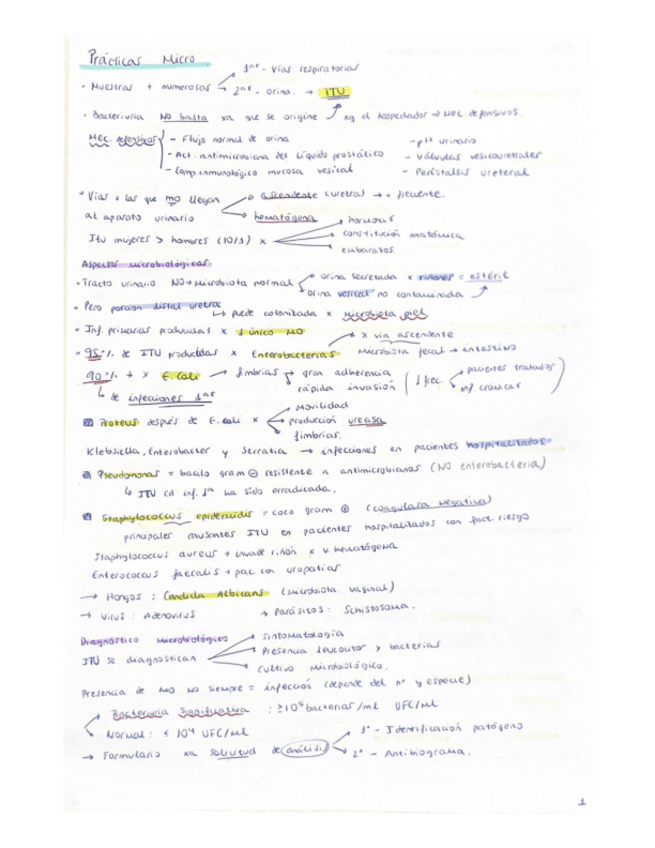 Prácticas Micro.
1ªs - Vías respiratorias
· Muestras + numerosas
2ªs - orina. → ITU
· Bacteriuria NO basta xa que se origine xq el hospedador → Mec defensivos.
Mec. defensivos
- Flujo normal de orina
- pH urinario
- Act. antimicrobiana del líquido prostático
- Válvulas vesicouretrales
- Comp. inmunológico mucosa vesical
- Peristalsis ureteral
· Vías x las que mo llegan
ascendente (uretral → + frecuente.
al aparato urinario
hematógena
Itu mujeres > hombres (10/1) x
hormonas
constitución anatómica
embarazos
Aspectos microbiológicos
· Tracto urinario NO → Microbiota normal
orina secretada x riñones = estéril
orina vesical no contaminada
· Pero porción distal uretra
↳ puede colonizada x microbiota piel
· Inf. primarias producidas x 1 único MO
→ x vía ascendente
· 95% de ITU producidas x Enterobacterias
Microbiota fecal → intestino
90% → x E. coli → fimbrias
gran adherencia
rápida invasión
↓ frec.
pacientes tratados
inf crónicas
↳ de infecciones 1ªs
Proteus después de E. coli x
Movilidad
producción ureasa
fimbrias.
Klebsiella, Enterobacter y Serratia → infecciones en pacientes hospitalizados
Pseudomonas = bacilo gram ⊖ resistente a antimicrobianos (NO enterobacteria)
↳ ITU cd inf. 1ª ha sido erradicada.
Staphylococcus epidermidis = coco gram ⊕ (coagulasa negativa)
principales causantes ITU en pacientes hospitalizados con fact. riesgo
Staphylococcus aureus → invade riñón x v. hematógena
Enterococcus faecalis → pac con uropatías
→ Hongos : Candida Albicans (microbiota vaginal)
→ Virus : Adenovirus
→ Parásitos : Schistosoma.
Diagnóstico microbiológico
ITU se diagnostican
Sintomatología
Presencia leucocitos y bacterias
Cultivo Microbiológico.
Presencia de MO NO siempre = infección (depende del nº y especie)
Bacteriuria Significativa : ≥10⁵ bacterias/ml UFC/ml
Normal : ≤ 10⁴ UFC/ml
→ Formulario xa solicitud de análisis
1º - Identificación patógeno
2º - Antibiograma.
1